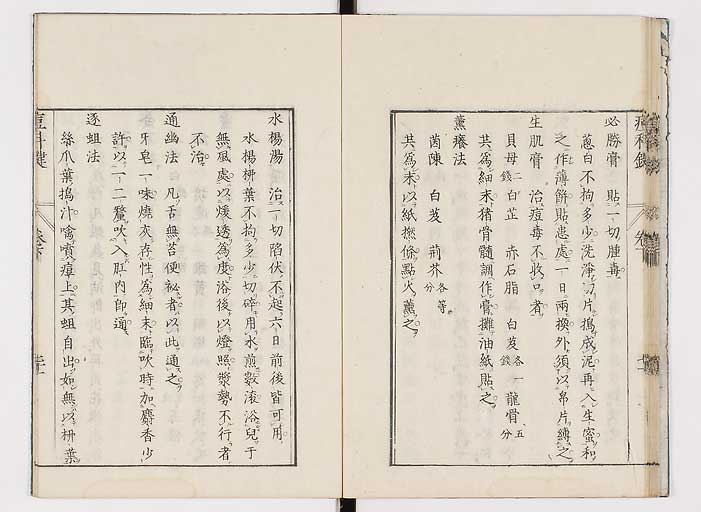 必勝膏　貼一切腫毒
蔥白不拘多少洗淨切片搗成泥再入生蜜和
之作薄餅貼患處一日兩換外須以帛片縛之
生肌膏　治痘毒不收口者
貝母二錢　白芷　赤石脂　白芨各一錢　龍骨五分
共爲細末猪骨髓調作膏攤油紙貼之
薰癢法
茵陳　白芨　荊芥各等分
共爲末以紙撚條點火薰之
水楊湯　治一切陷伏不起六日前後皆可用
水楊枡葉不拘多少切碎用水煎數滾浴兒于
無風處以煖透爲度浴後以燈照漿勢不行者
不治
通幽法　凡舌無苔便秘者以此通之
牙皂一味燒灰存性爲細末臨吹時加麝香少
許以一二釐吹入肛內即通
逐蛆法
絲爪葉搗汁噙噴瘴上其蛆自出如無以枡葉
痘科鍵　卷下